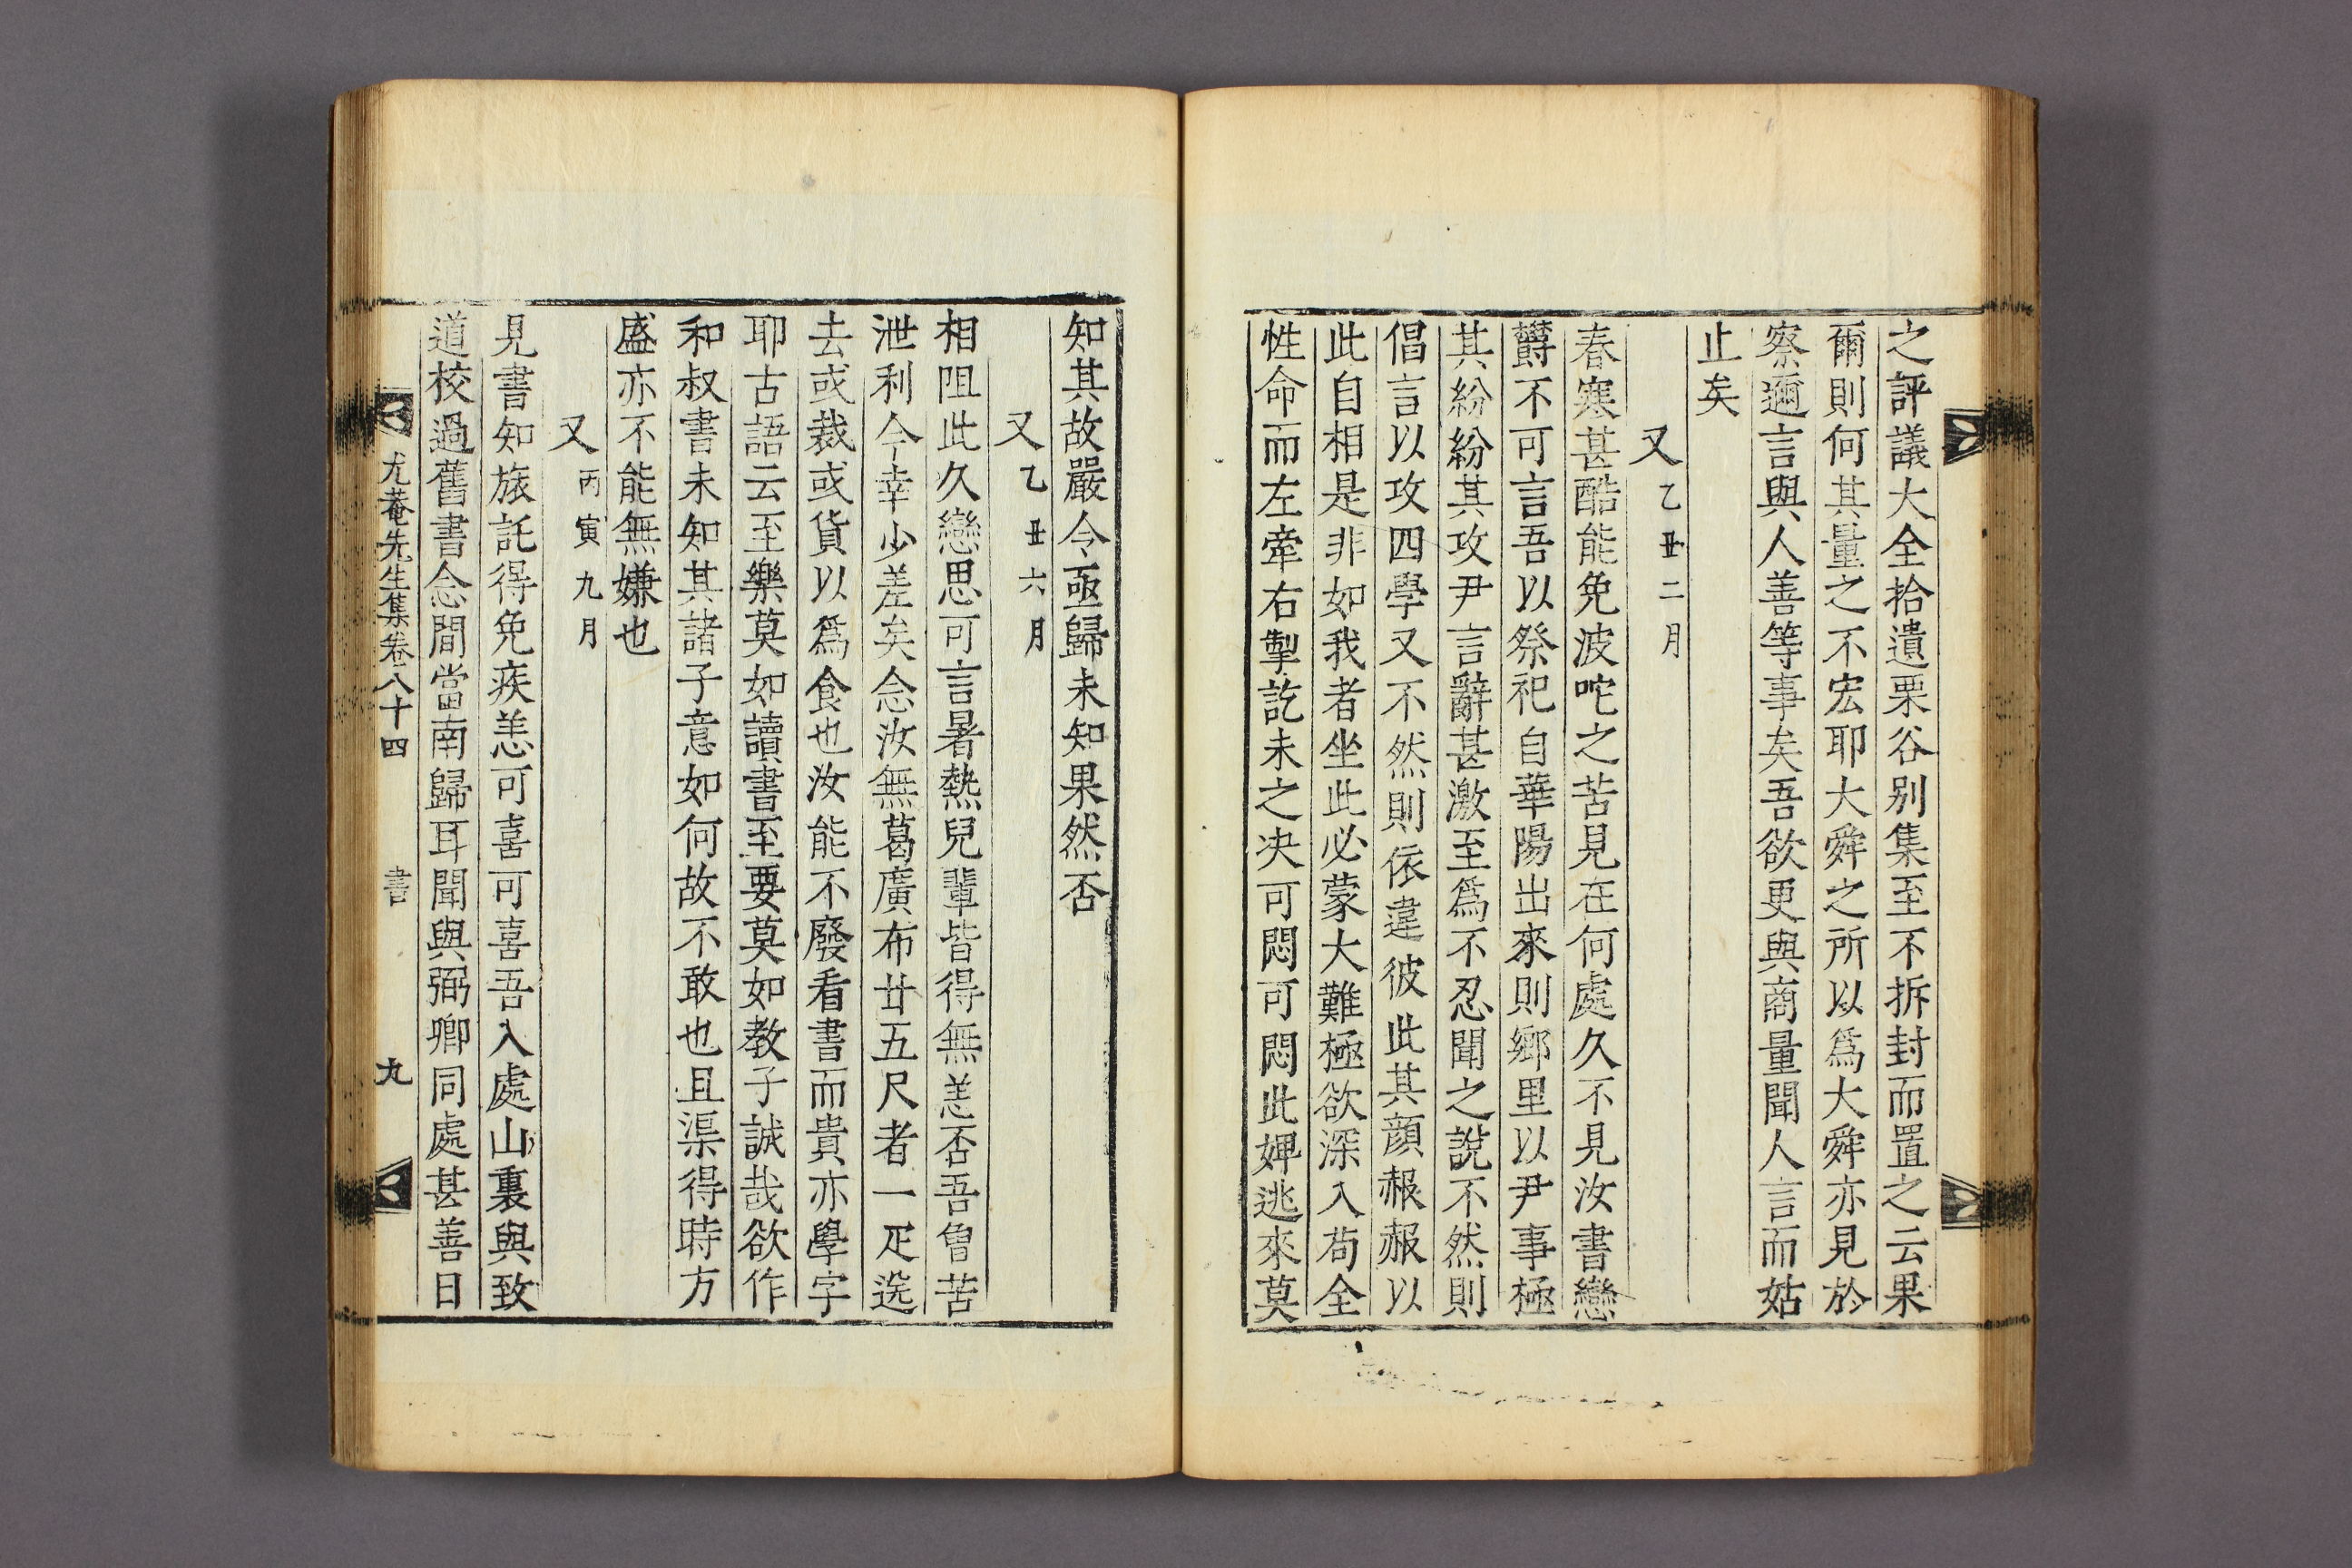 之評議大全拾遺栗谷別集至不拆封而置之云果
爾則何其量之不宏耶大舜之所以爲大舜亦見於
察邇言與人善等事矣吾欲更與商量聞人言而姑
止矣
又乙丑二月
春寒甚酷能免波咜之苦見在何處久不見汝書戀
欝不可言吾以祭祀自華陽出來則鄉里以尹事極
其紛紛其攻尹言辭甚激至爲不忍聞之說不然則
倡言以攻四學又不然則依違彼此其顔赧赧以
此自相是非如我者坐此必蒙大難極欲深入苟全
性命而左牽右掣訖未之决可悶可悶此婢逃來莫
知其故嚴令亟歸未知果然否
又乙丑六月
相阻此久戀思可言暑熱兒輩皆得無恙否吾曾苦
泄利今幸少差矣念汝無葛廣布廿五尺者一疋送
去或裁或貨以爲食也汝能不廢看書而貴亦學字
耶古語云至樂莫如讀書至要莫如教子誠哉欲作
和叔書未知其諸子意如何故不敢也且渠得時方
盛亦不能無嫌也
又丙寅九月
見書知旅託得免疾恙可喜可喜吾入處山裏與致
道校過舊書念間當南歸耳聞與弼卿同處甚善日
尤菴先生集卷八十四 書 九